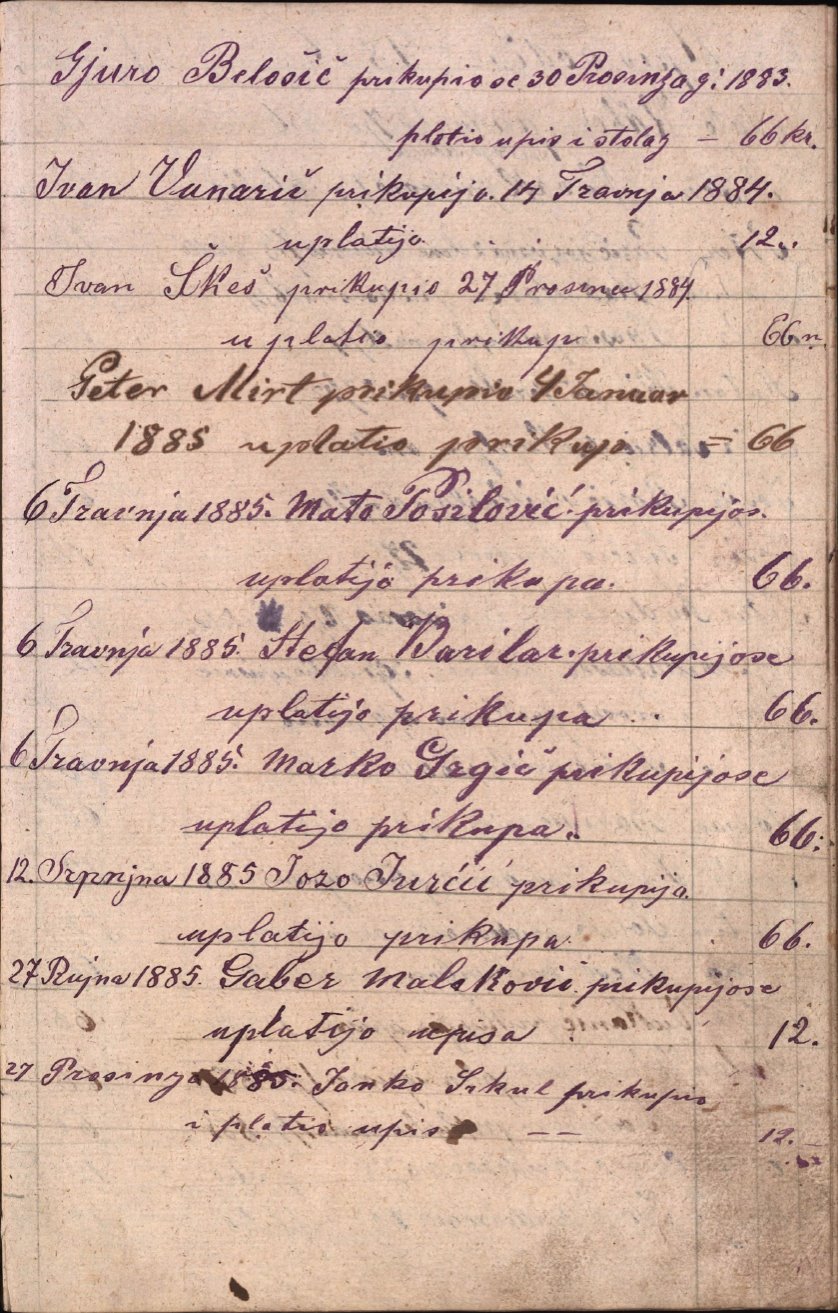 Gjuro Belošič prikupio se 30 Prosinza g: 1883.
platio upis i stolag — 66 kr.
Ivan Vunarič prikupijo. 14 Travnja 1884.
uplatijo 12..
Ivan Škeš prikupio 27 Prosinca 1884.
uplatio prikup 66 n
Peter Mirt prikupio 4 Januar
1885 uplatio prikup = 66
6 Travnja 1885. Mato Posilović. prikupijos.
uplatijo prikupa. 66.
6 Travnja 1885. Stefan Varilar. prikupijose
uplatijo prikupa . . 66.
6 Travnja 1885. Marko Grgič prikupijose
uplatijo prikupa. 66.
12. Srpnjna 1885 Jozo Jurčić prikupijo.
uplatijo prikupa 66.
27 Rujna 1885. Gaber Malekovič prikupijose
uplatijo upisa 12.
27 Prosinza 1885. Janko Srkul prikupio
i platio upis — — 12. —